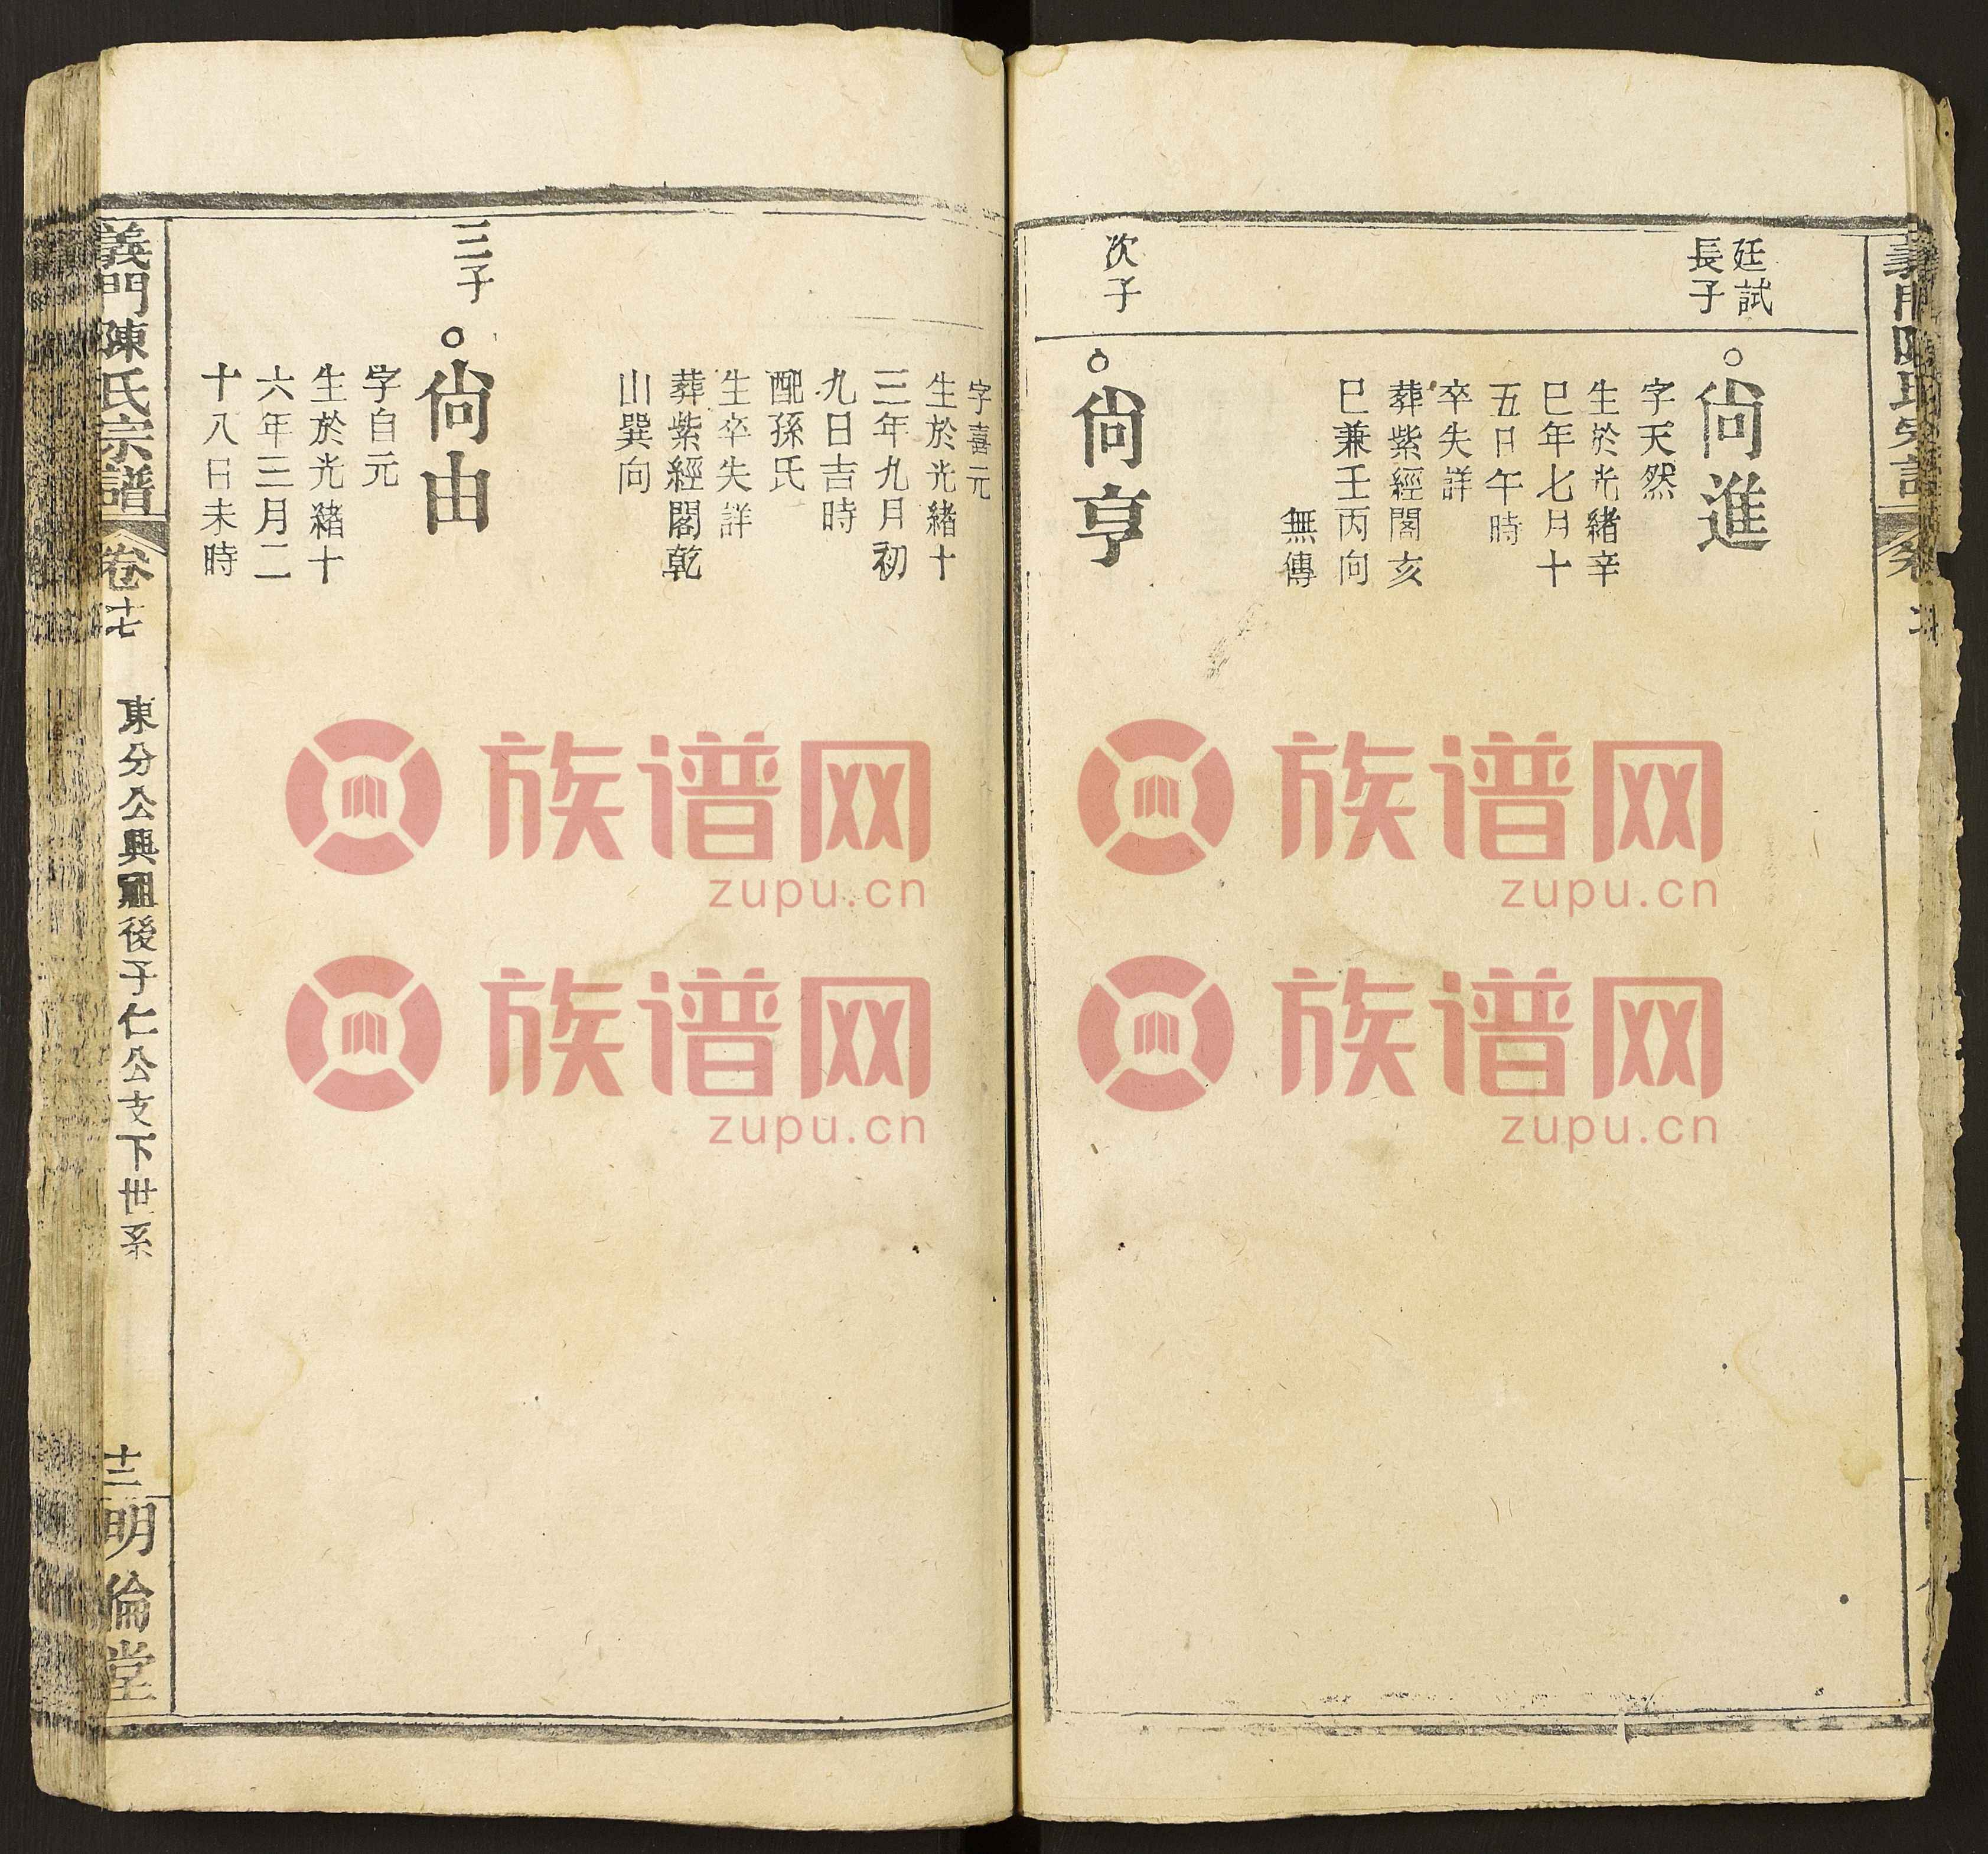 廷試
長子
尙進
字天然
生於光緒辛
巳年七月十
五日午時
卒失詳
葬紫經閣亥
巳兼壬丙向
無傳
次子
尙亨
字喜元
生於光緒十
三年九月初
九日吉時
配孫氏
生卒失詳
葬紫經閣乾
山巽向
三子
尙由
字自元
生於光緒十
六年三月二
十八日未時
義門陳氏宗譜
卷十七
東分公興祖後子仁公支下世系
十三
明倫堂
族谱网
zupu.cn
族谱网
zupu.cn
族谱网
zupu.cn
族谱网
zupu.cn